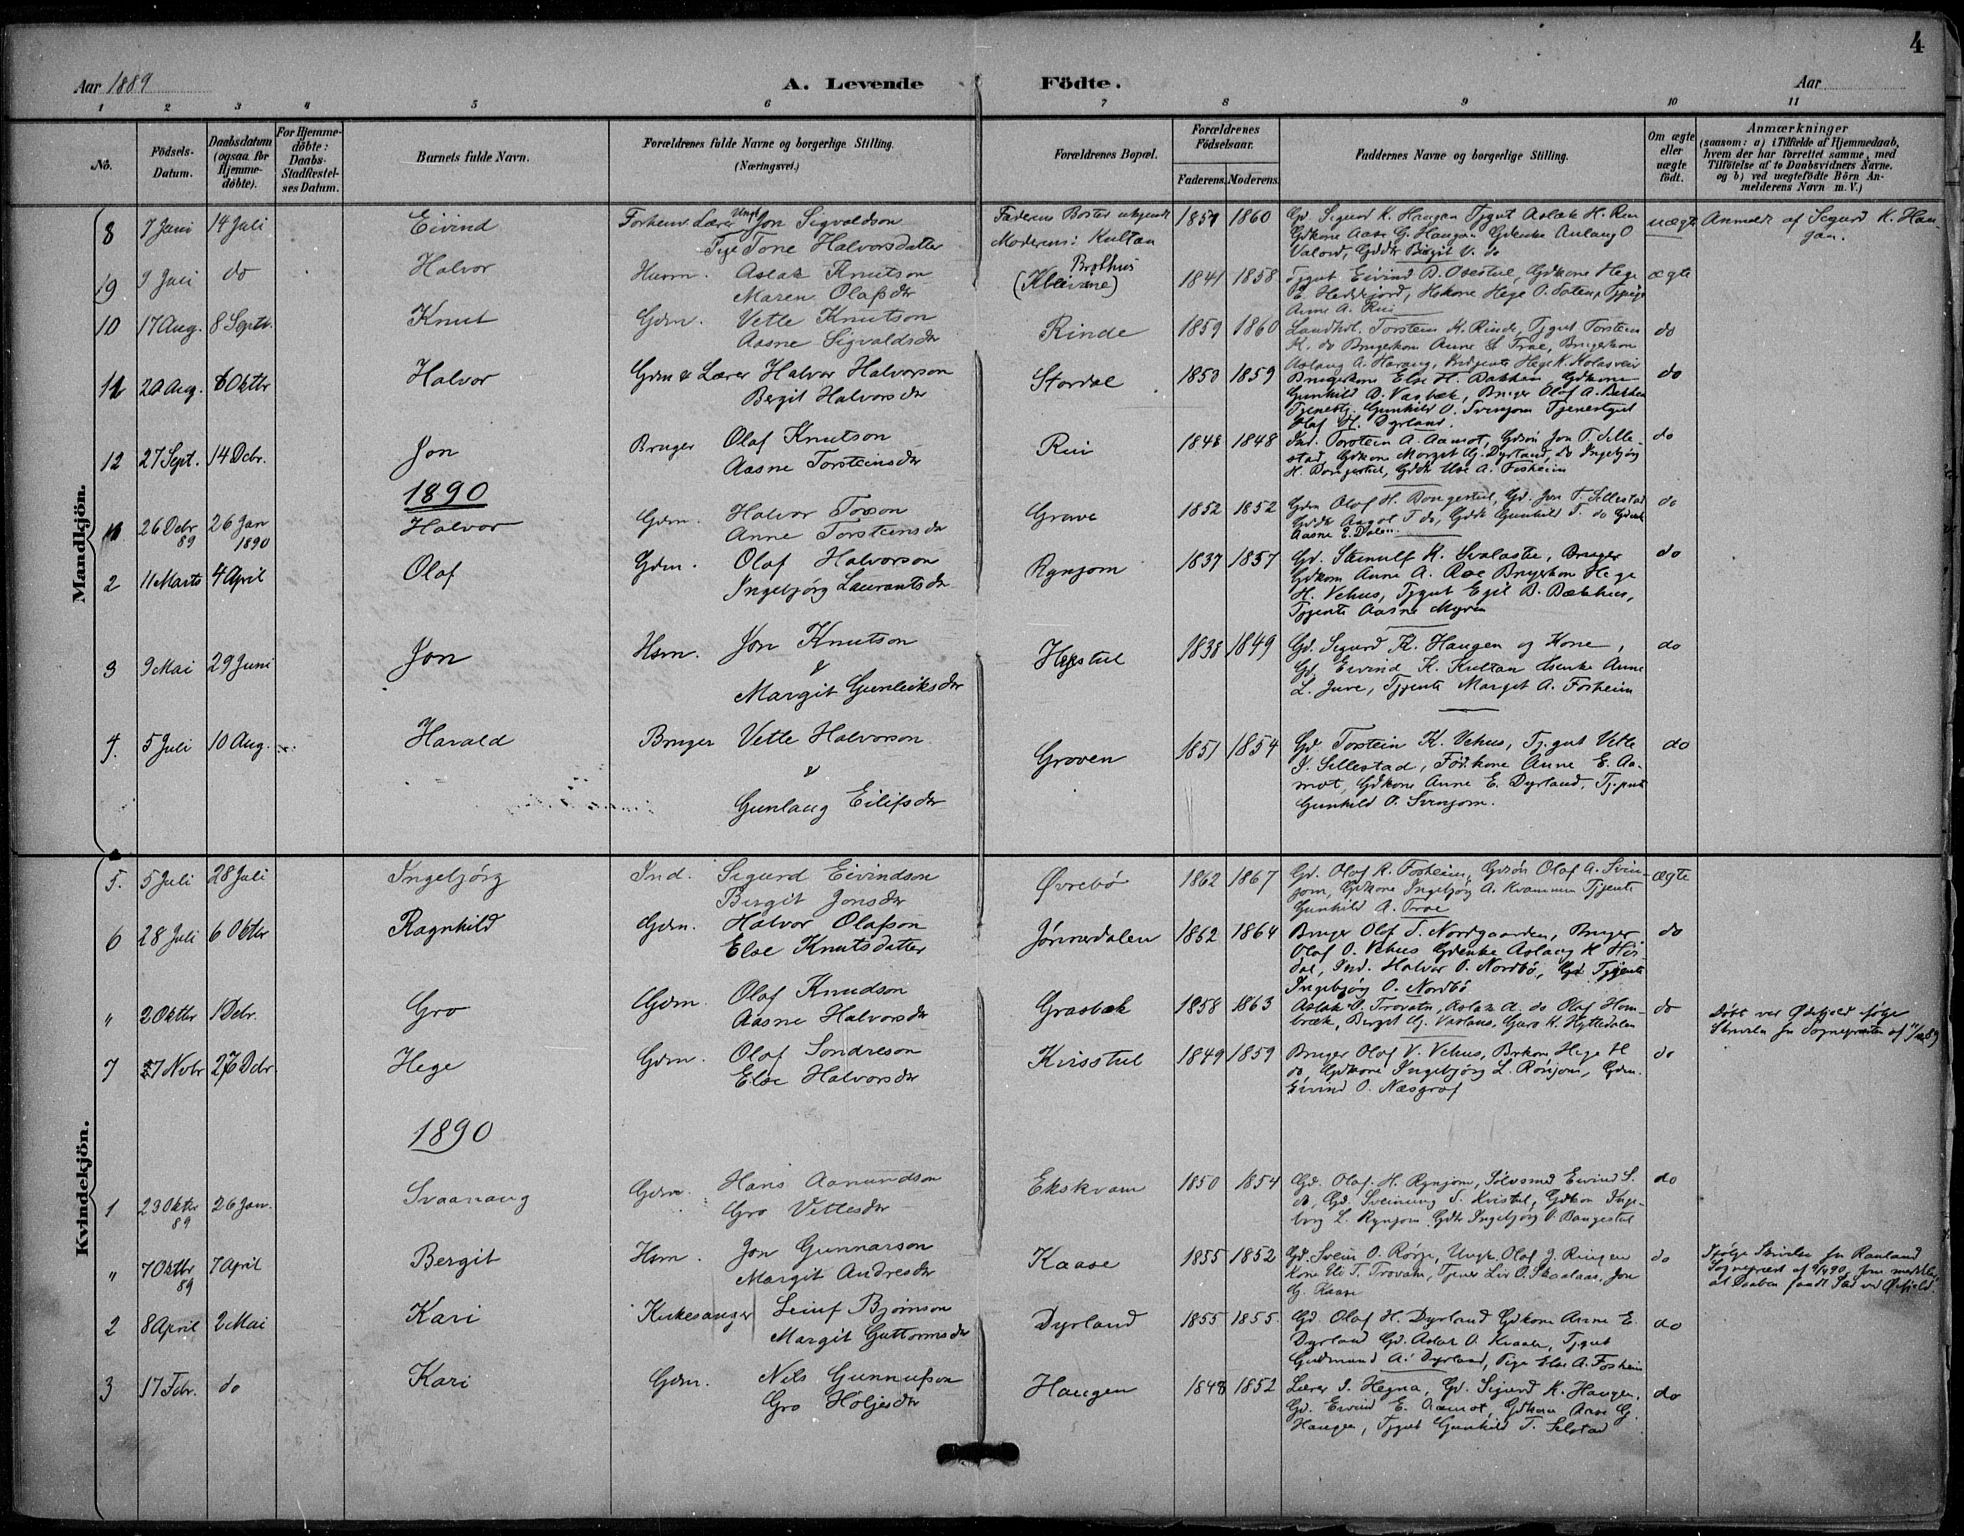 4
Aar 1889
A. Levende Födte.
Aar
1 2 3 4 5 6 7 8 9 10 11
No.
Födsels-Datum.
Daabsdatum (ogsaa for Hjemme-döbte).
For Hjemme-döbte: Daabs-Stadfæstel-ses Datum.
Barnets fulde Navn.
Forældrenes fulde Navne og borgerlige Stilling. (Næringsvei.)
Forældrenes Bopæl.
Forældrenes Födselsaar.
Faderens. Moderens.
Faddernes Navne og borgerlige Stilling.
Om ægte eller uægte födt.
Anmærkninger
(saasom: a) i Tilfælde af Hjemmedaab, hvem der har forrettet samme, med Tilföielse af to Daabsvidners Navne. og b) ved uægtefödte Börn An-melderens Navn m. V.)
Mandkjön.
8 7 Juni 14 Juli Eivind Forhenv. Lærer Ungk Jon Sigvaldson
Pige Tone Halvorsdatter
Faderens Bosted ubekjendt
Moderens: Kultan
1857 1860 Gd. Sigurd K. Haugen Tjgut Aslak H. Rui
Gdkone Aase G. Haugen Gdenke Anlaug O
Valord, Gddtr Birgit V. do
uægte Anmeldt af Sigurd K. Hau-
gen.
9 9 Juli do Halvor Husm. Aslak Knutson
Maren Olafsdr
Brolhus
(Kleivane)
1841 1858 Tjgut Eivind B. Osestul, Gdkone Hege
E. Heddejord, Hskone Hege O. Soten, Tjpige
Anne A. Rui
ægte
10 17 Aug. 8 Septr. Knut Gdm. Vette Knutson
Aasne Sigvaldsdr
Rinde 1859 1860 Landhdl. Torstein K. Rinde, Tjgut Torstein
K. do Brugerkone Anne S Trae, Brugerkon
Aslaug A. Haraug, Pidjente Hege K. Kolasvein
do
11 20 Aug. 6 Oktbr Halvor Gdm & Lærer Halvor Halvorson
Bergit Halvorsdr
Stordal 1850 1859 Brugerkone Else H. Bakken, Gdkone
Gunhild D. Vasbæk, Bruger Olaf A. Bakken
Tjenestj. Gunhild O. Svenjom Tjenestgut
Olaf H. Dyrland.
do
12 27 Sept. 14 Debr. Jon Bruger Olaf Knutson
Aasne Torsteinsdr
Rui 1848 1848 Ind. Torstein A. Aamot, Gdsön Jon T. Sille-
stad, Gdkone Margit Gj. Dyrland, do Ingebjørg
H. Bongestul, Gddtr Else A. Fosheim
do
1890
1 26 Debr 89 26 Jan 1890 Halvor Gdm. Halvor Toson
Anne Torsteinsdr
Grave 1852 1852 Gdm Olaf H. Bongestul, Gd. Jon T. Sillestad
Gddtr Aagot T do, Gddtr Gunhild T. do Gdenk
Aasne E. Dalen
do
2 11 Marts 4 April Olaf Gdm. Olaf Halvorson
Ingebjørg Laurantsdr
Rynjom 1837 1857 Gd. Steinulf K. Svalastu, Bruger
Gdkone Anne A. Roe Brugerkon Hege
H. Vehus, Tjgut Egil B. Bækhus,
Tjjente Aasne Myren
do
3 9 Mai 29 Juni Jon Hsm. Jon Knutson
&
Margit Gunleiksdr
Hegstul 1838 1849 Gd. Sigurd K. Haugen og Kone,
Gd. Eivind K. Kultan Hsenke Anne
L. Juve, Tjjente Margit A. Fosheim
do
4. 5 Juli 10 Aug. Harald Bruger Vette Halvorson
&
Gunlaug Eilifsdr
Groven 1851 1854 Gd. Torstein K. Vehus, Tj.gut Vette
J. Sillestad, Födkone Anne E. Aa-
mot, Gdkone Anne E. Dyrland, Tj.pike
Gunhild O. Svenjom.
do
Kvindekjön.
5. 5 Juli 28 Juli Ingebjørg Ind. Sigurd Eivindson
Birgit Jonsdr
Øvrebø 1862 1867 Gd. Olaf K. Fosheim, Gdsön Olaf A. Svein-
jom, Gdkone Ingebjørg A. Kvammen Tjjente
Gunhild A. Trae
ægte
6 28 Juli 6 Oktbr Ragnhild Gdm. Halvor Olafson
Else Knutsdatter
Jønnerdalen 1852 1864 Bruger Olaf T. Nordgaarden, Bruger
Olaf O. Vehus Gdenke Aslaug K Høi-
dal, Ind. Halvor O. Nordbø, Gd Tjjente
Ingebjørg O. Nordbø
do
" 2 Oktbr 1 Debr. Gro Gdm. Olaf Knudson
Aasne Halvorsdr
Grasbæk 1858 1863 Aslak O. Trovatn, Aslak A. do Olaf Hom-
bræk, Birgit Gj. Vaslaus, Guro K. Hyttedalen
do Døbt ved Øifjeld ifølge
Skrivelse fra Sognepræsten af 11/12 89
7 27 Novbr 26 Debr. Hege Gdm. Olaf Sondreson
Else Halvorsdr
Kvisstul 1849 1859 Bruger Olaf V. Vehus, Brkone Hege H
do, Gdkone Ingebjørg L. Rønjom, Gdm.
Eivind O. Næsgraf
do
1890
1 23 Oktbr 89 26 Jan. Svaanaug Gdm. Hans Aanundson
Gro Vettesdr
Ekskvam 1850 1854 Gd. Olaf H. Rynjom, Sølvsmed Eivind S.
do, Gd. Sveinung S. Kvistul, Gdkon Inge-
borg L. Rynjom Gddtr Ingebjørg V. Bangestul
do
" 7 Oktbr 89 7 April Bergit Hsm. Jon Gunnarson
Margit Andresdr
Kaase 1855 1852 Gd. Svein O. Rørje, Ungk. Olaf J. Ringen
Kone Eli T. Trovatn, Tjener Liv O. Skaalaas, Jon
G. Kaase
do Ifølge Skrivelse fra Rauland
Sognepræst af 9/4 90, som meddeler,
at Daaben fandt Sted ved Øifjeld.
2 8 April 2 Mai Kari Kirkesanger Leiuf Bjørnson
Margit Guttormsdr
Dyrland 1855 1855. Gd. Olaf H. Dyrland Gdkone Anne E.
Dyrland Gd. Aslak O. Kvaale, Tjgut
Gudmund A. Dyrland, Pige Else A. Fosheim
do
3 17 Febr. do Kari Gdm. Nils Gunnufson
Gro Holjesdr
Haugen 1848 1852 Lærer J. Hegna, Gd. Sigurd K. Haugen,
Gd. Eivind E. Aamot, Gdkone Aase G.
Haugen, Tjgut Gunhild T. Selstad
do